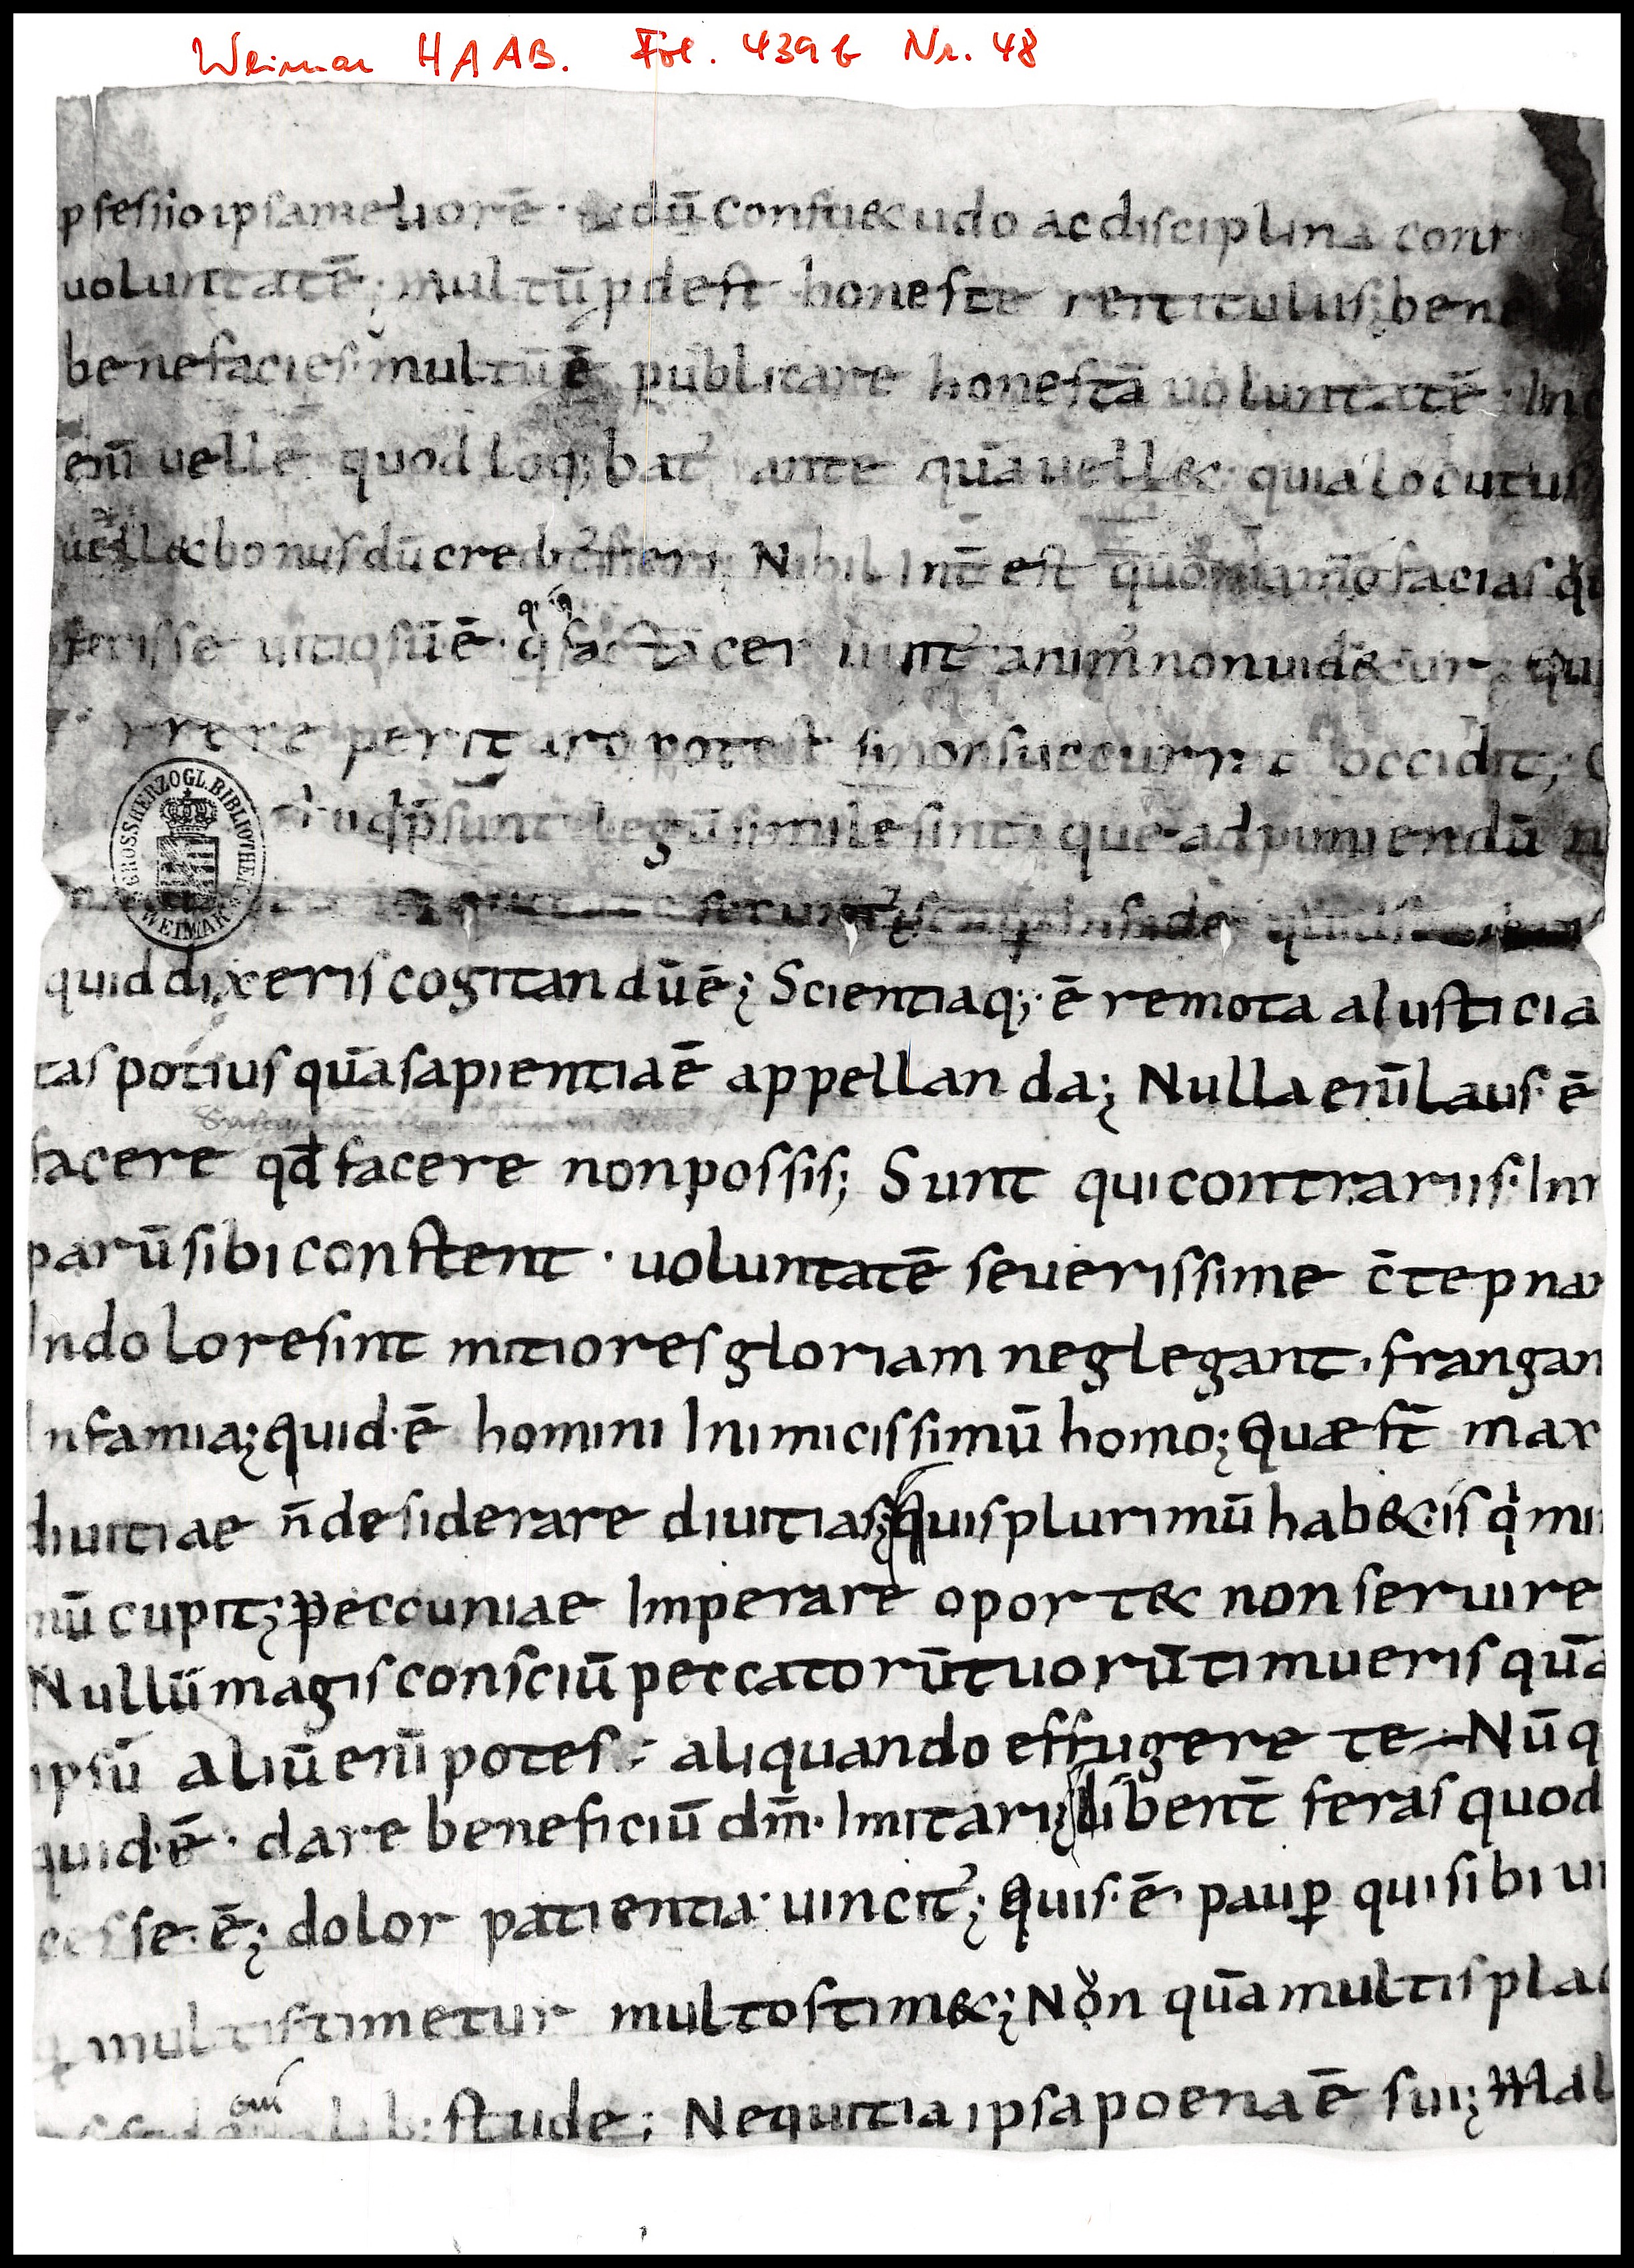 Weimar HAAB. Fol. 439 b Nr. 48
p̄fessio ipsa meliorē · dū consu&udo ac disciplina cont
uoluntatē; multū pdest honeste titulus; bene
benefacies· multū ē publicare honestā uoluntatē·
eni̅ uelle quod loq;bat' ante quā uell& quia locutus
uell& bonus dū credit' fieri; Nihil Int̄ est facias
ferisse uitiosū ē· anim' non uid&ur; qui
perituro potest si non succurrit occidit;
p̄sunt legū simile sint que ad puniendū
GROSSHERZOGL. BIBLIOTHEK WEIMAR
quid dixeris cogitandū ē; Scientia q;· ē remota a Iusticia
tas potius quā sapientia ē appellanda; Nulla enī laus· ē
facere qđ facere non possis; Sunt qui contrariis· In r
parū sibi constent · uoluntatē seuerissime c̄tepnar
In dolore sint mitiores gloriam neglegant· frangan
Infamia; quid· ē homini Inimicissimū homo; Quae st̄ max
diuitiae n̄ desiderare diuitias; quis plurimū hab&· is q̇ mi
nū cupit; peccuniae Imperare oport& non seruire
Nullū magis consciū peccatorū tuorū timueris quā
ipsū aliū enī potes aliquando effugere te Nūq
quid· ē· dare beneficiū dm̄· Imitari; libent̄ feras quod
cesse· ē; dolor patientia· uincit'; quis· ē· paup̱ qui sibi ui
multis timetur multos tim&; Non quā multis plac
stude; Nequitia ipsa poena ē sui; Mal